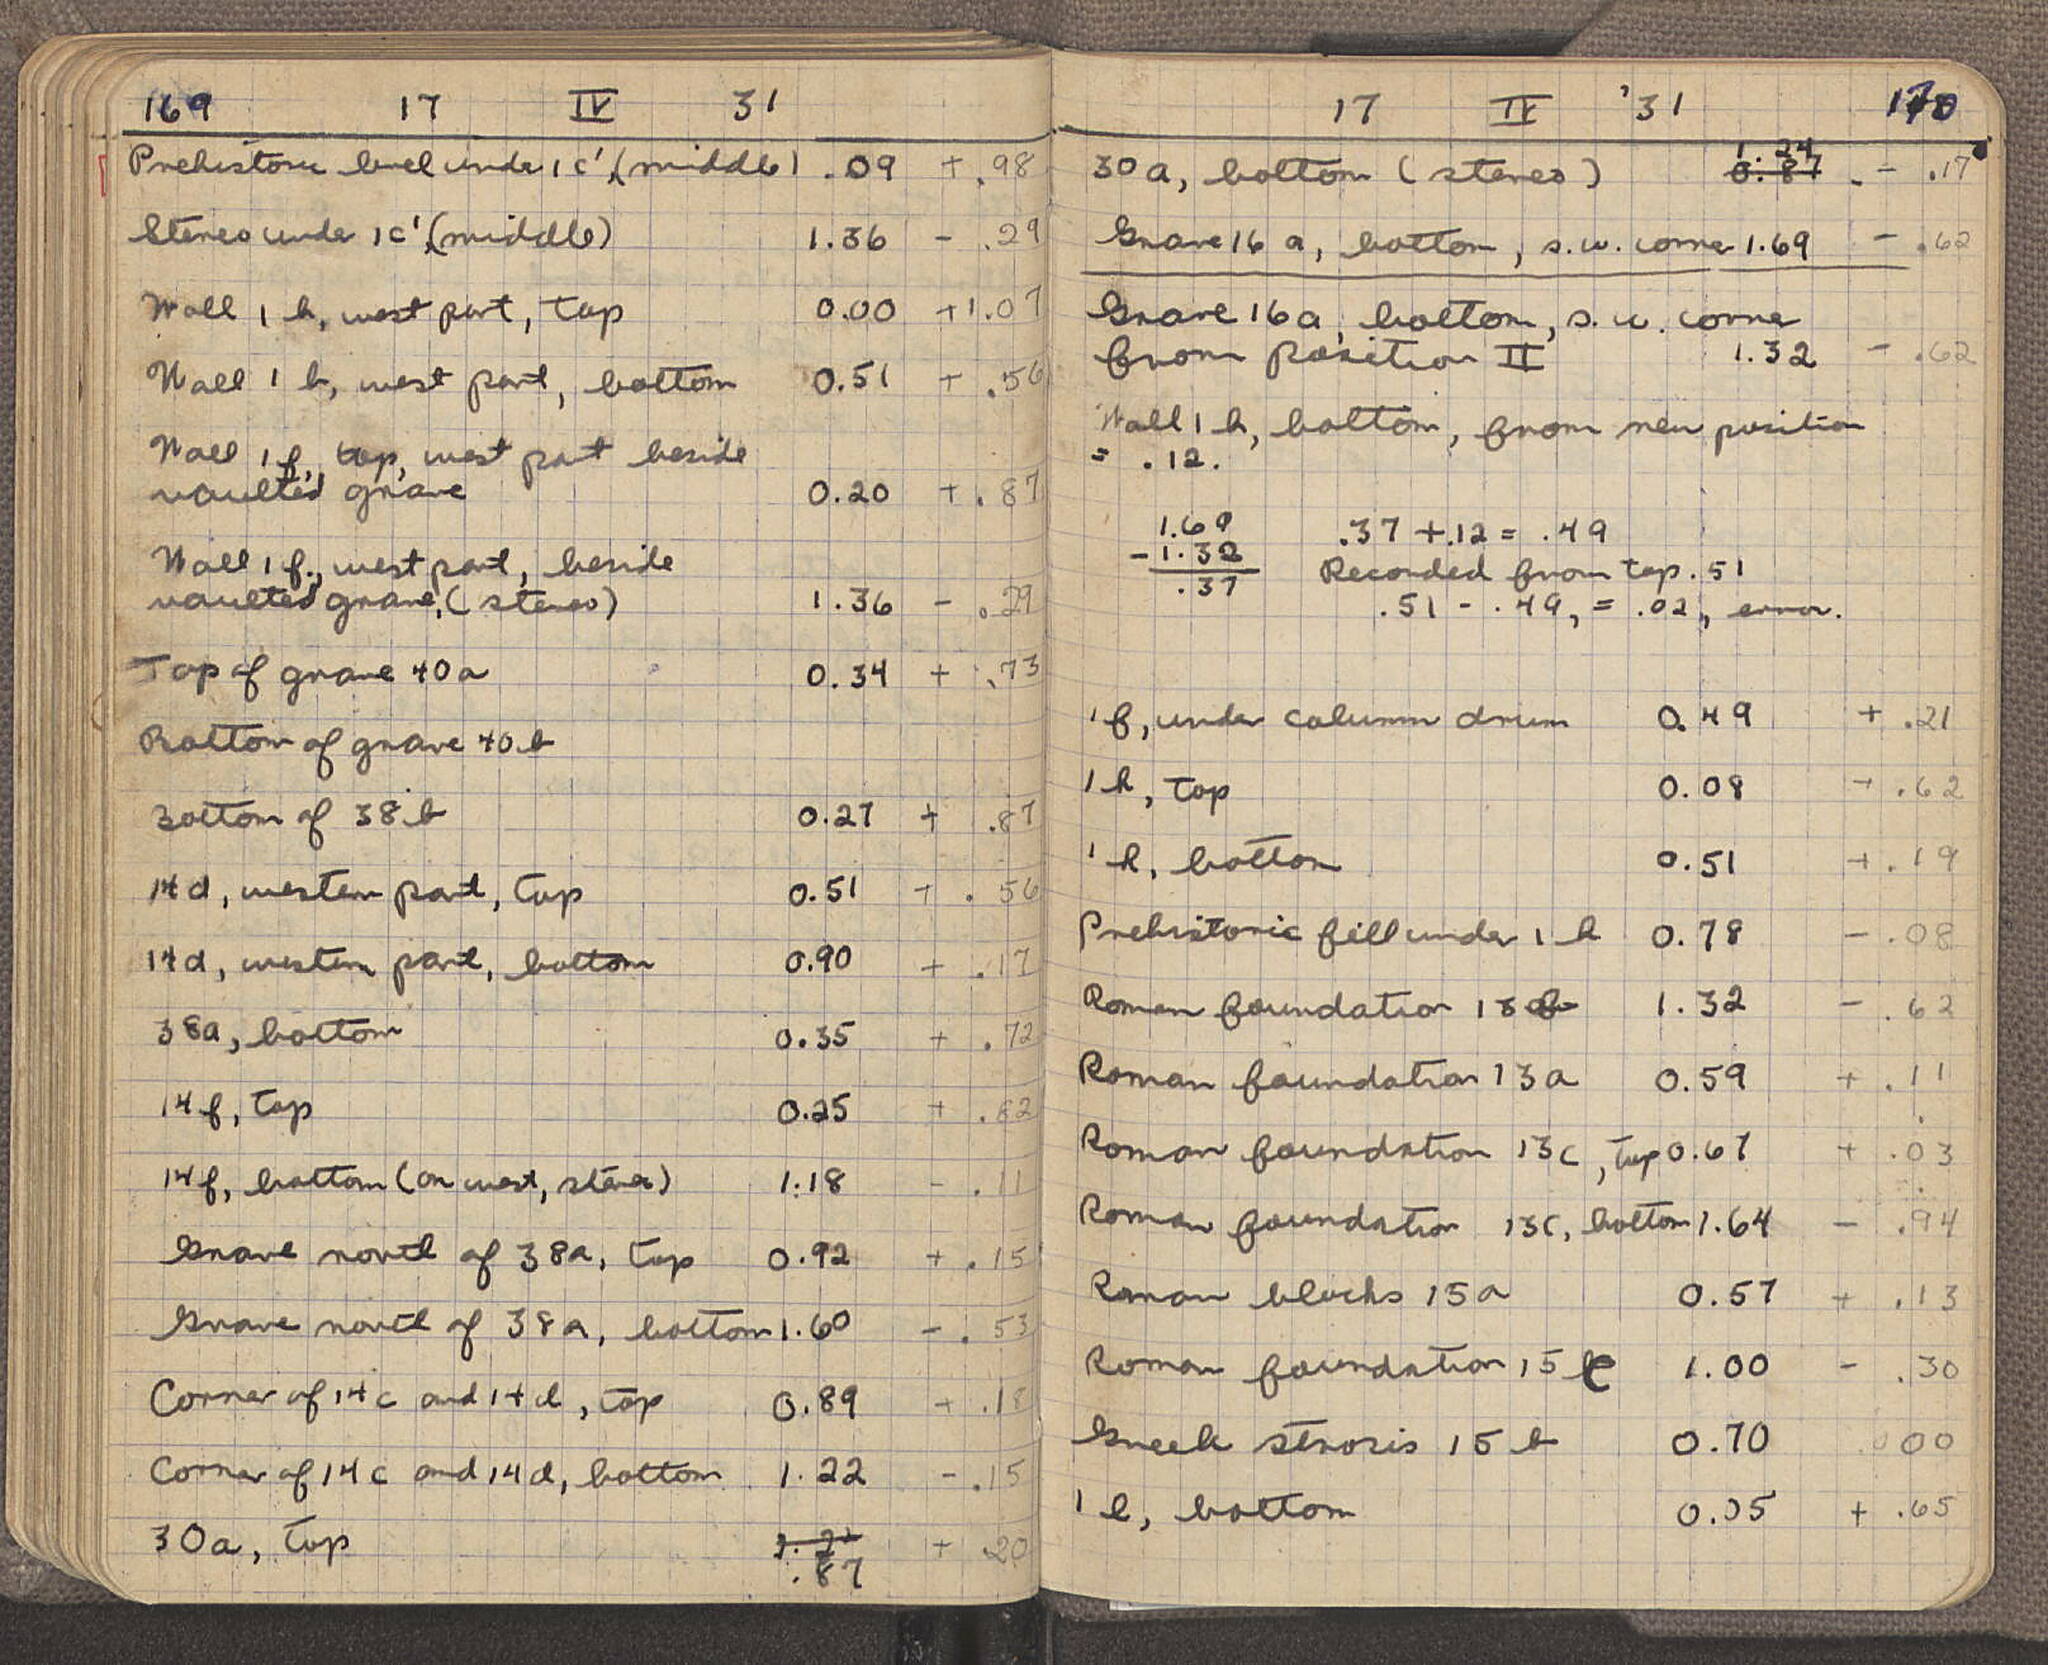 169 17 IV 31
Prehistoric level under 1c', (middle) .09 + .98
Stereo under 1c', (middle) 1.36 - .29
Wall 1 h, west part, top 0.00 +1.07
Wall 1 h, west part, bottom 0.51 + .56
Wall 1f, top, west part beside
vaulted grave 0.20 + .87
Wall 1f, west part, beside
vaulted grave, (stereo) 1.36 - .29
Top of grave 40a 0.34 + .73
Bottom of grave 40b
Bottom of 38b 0.27 + .87
14d, western part, top 0.51 + .56
14d, western part, bottom 0.90 + .17
38a, bottom 0.35 + .72
14f, top 0.25 + .82
14f, bottom (on west, stereo) 1.18 - .11
Grave north of 38a, top 0.92 + .15
Grave north of 38a, bottom 1.60 - .53
Corner of 14c and 14d, top 0.89 + .18
Corner of 14c and 14d, bottom 1.22 - .15
30a, top + .20
.87
17 IV '31 170
1.24
30a, bottom (stereo) 0.87 - .17
Grave 16a, bottom, s.w. corner 1.69 - .62
Grave 16a, bottom, s.w. corner
from position II 1.32 - .62
Wall 1 h, bottom, from new position
= .12.
1.69 .37 + .12 = .49
- 1.32 Recorded from top .51
.37 .51 - .49, = .02, error.
1f, under column drum 0.49 + .21
1h, top 0.08 + .62
1h, bottom 0.51 + .19
Prehistoric fill under 1 h 0.78 - .08
Roman foundation 13 1.32 - .62
Roman foundation 13a 0.59 + .11
Roman foundation 13c, top 0.67 + .03
Roman foundation 13c, bottom 1.64 - .94
Roman blocks 15a 0.57 + .13
Roman foundation 15 1.00 - .30
Greek strosis 15b 0.70 0 00
1 l, bottom 0.05 + .65